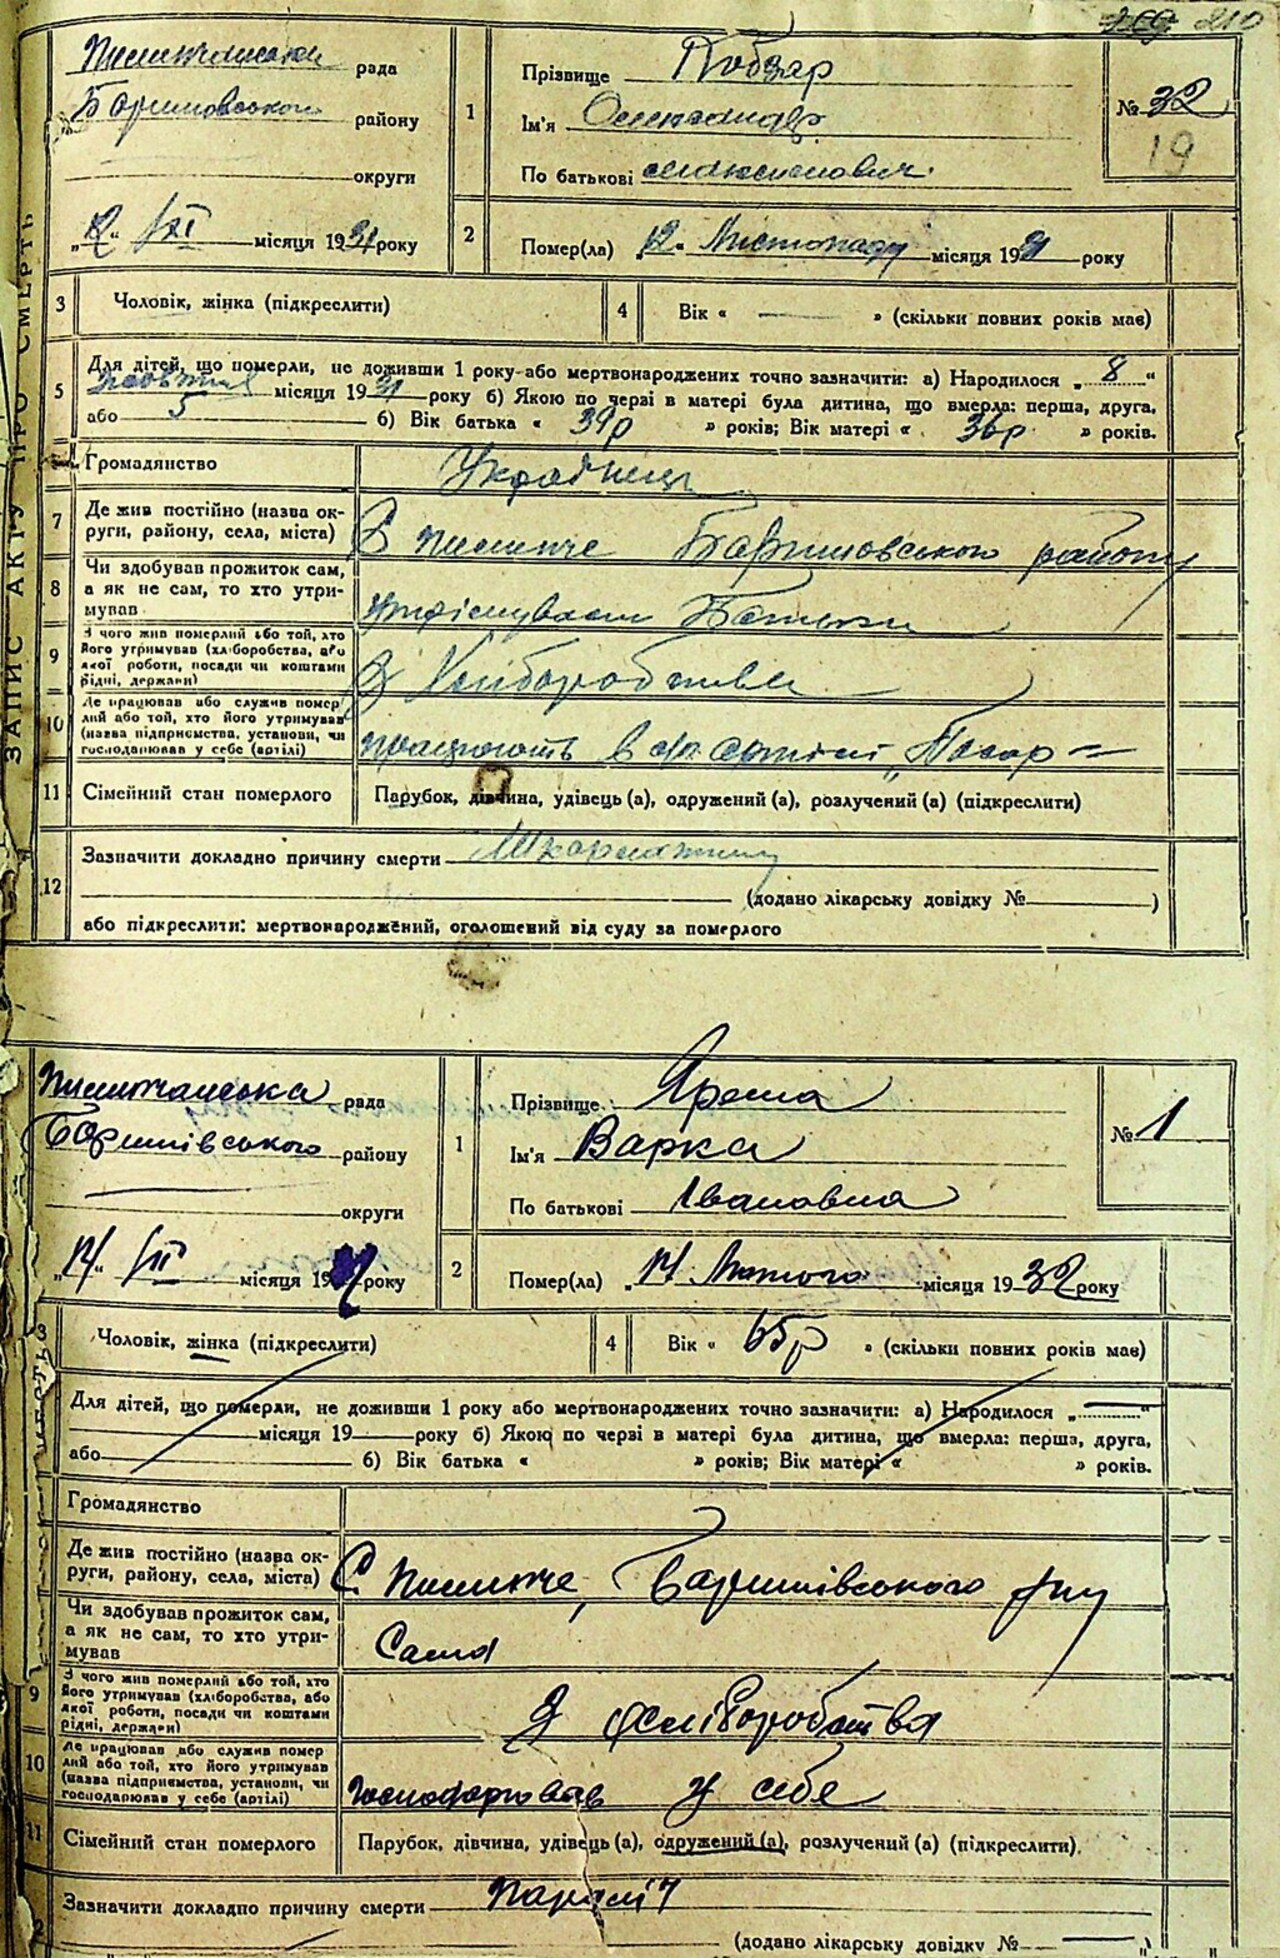 210
рада
Боришовського району
округи
"12" /XI місяця 1931 року
ЗАПИС АКТУ ПРО СМЕРТЬ
1
Прізвище Кобзар
Ім'я Олександр
По батькові
№ 32
19
2
Помер(ла) "12" Листопаду місяця 1931 року
3 Чоловік, жінка (підкреслити)
4 Вік « — » (скільки повних років має)
5
Для дітей, що померли, не доживши 1 року або мертвонароджених точно зазначити: а) Народилося „ 8 “
жовтня місяця 1931 року б) Якою по черзі в матері була дитина, що вмерла: перша, друга,
або 5 б) Вік батька « 39р » років; Вік матері « 36р » років.
Громадянство Українець
7 Де жив постійно (назва ок-
руги, району, села, міста)
С Пилипче Боришовського району
8 Чи здобував прожиток сам,
а як не сам, то хто утри-
мував
Батьки
9 З чого жив померлий або той, хто
його утримував (хліборобства, або
якої роботи, посади чи коштами
рідні, держави)
З Хліборобства
10 Де працював або служив помер
лий або той, хто його утримував
(назва підприємства, установи, чи
господарював у себе (артілі)
працюють в артілі
11 Сімейний стан померлого
Парубок, дівчина, удівець (а), одружений (а), розлучений (а) (підкреслити)
12
Зазначити докладно причину смерти
(додано лікарську довідку № )
або підкреслити: мертвонароджений, оголошений від суду за померлого
Пилипчанська рада
Боришівського району
округи
"14" /II місяця 19 року
1
Прізвище Ярема
Ім'я Варка
По батькові Івановна
№ 1
2
Помер(ла) "14" Лютого місяця 1932 року
3 Чоловік, жінка (підкреслити)
4 Вік « 65р » (скільки повних років має)
Для дітей, що померли, не доживши 1 року або мертвонароджених точно зазначити: а) Народилося „ “
місяця 19 року б) Якою по черзі в матері була дитина, що вмерла: перша, друга,
або б) Вік батька « » років; Вік матері « » років.
Громадянство
Де жив постійно (назва ок-
руги, району, села, міста)
С Пилипче, Боришівського р-ну
Чи здобував прожиток сам,
а як не сам, то хто утри-
мував
Сама
9 З чого жив померлий або той, хто
його утримував (хліборобства, або
якої роботи, посади чи коштами
рідні, держави)
З хліборобства
10 Де працював або служив помер
лий або той, хто його утримував
(назва підприємства, установи, чи
господарював у себе (артілі)
господарював у себе
11 Сімейний стан померлого
Парубок, дівчина, удівець (а), одружений (а), розлучений (а) (підкреслити).
Зазначити докладно причину смерти Параліч
(додано лікарську довідку № )